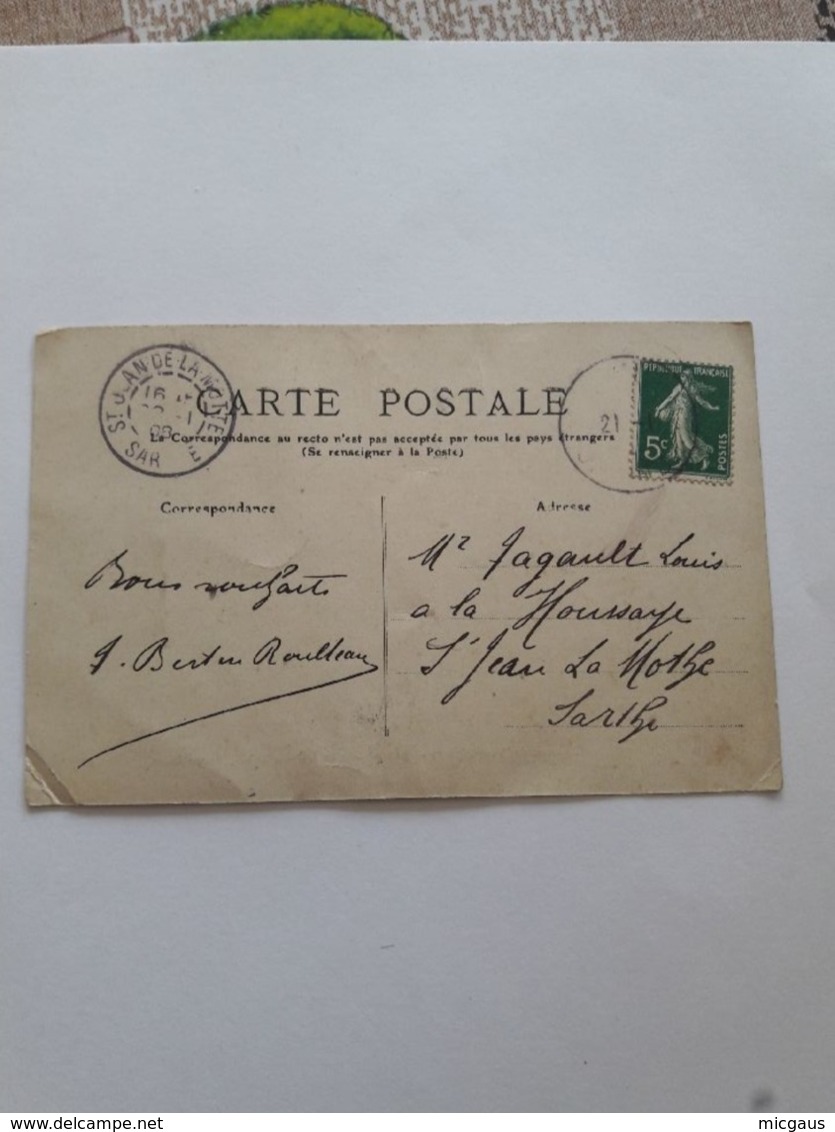 ST JEAN-DE-LA-MOTTE
16
08
SARTHE
CARTE POSTALE
La Correspondance au recto n'est pas acceptée par tous les pays étrangers
(Se renseigner à la Poste)
21
REPUBLIQUE FRANÇAISE
5c
POSTES
Correspondance
Bons souhaits
Bertin Roulleau
Adresse
Mr Jagault Louis
a la Houssaye
St Jean La Mothe
Sarthe
Delcampe.net
micgaus